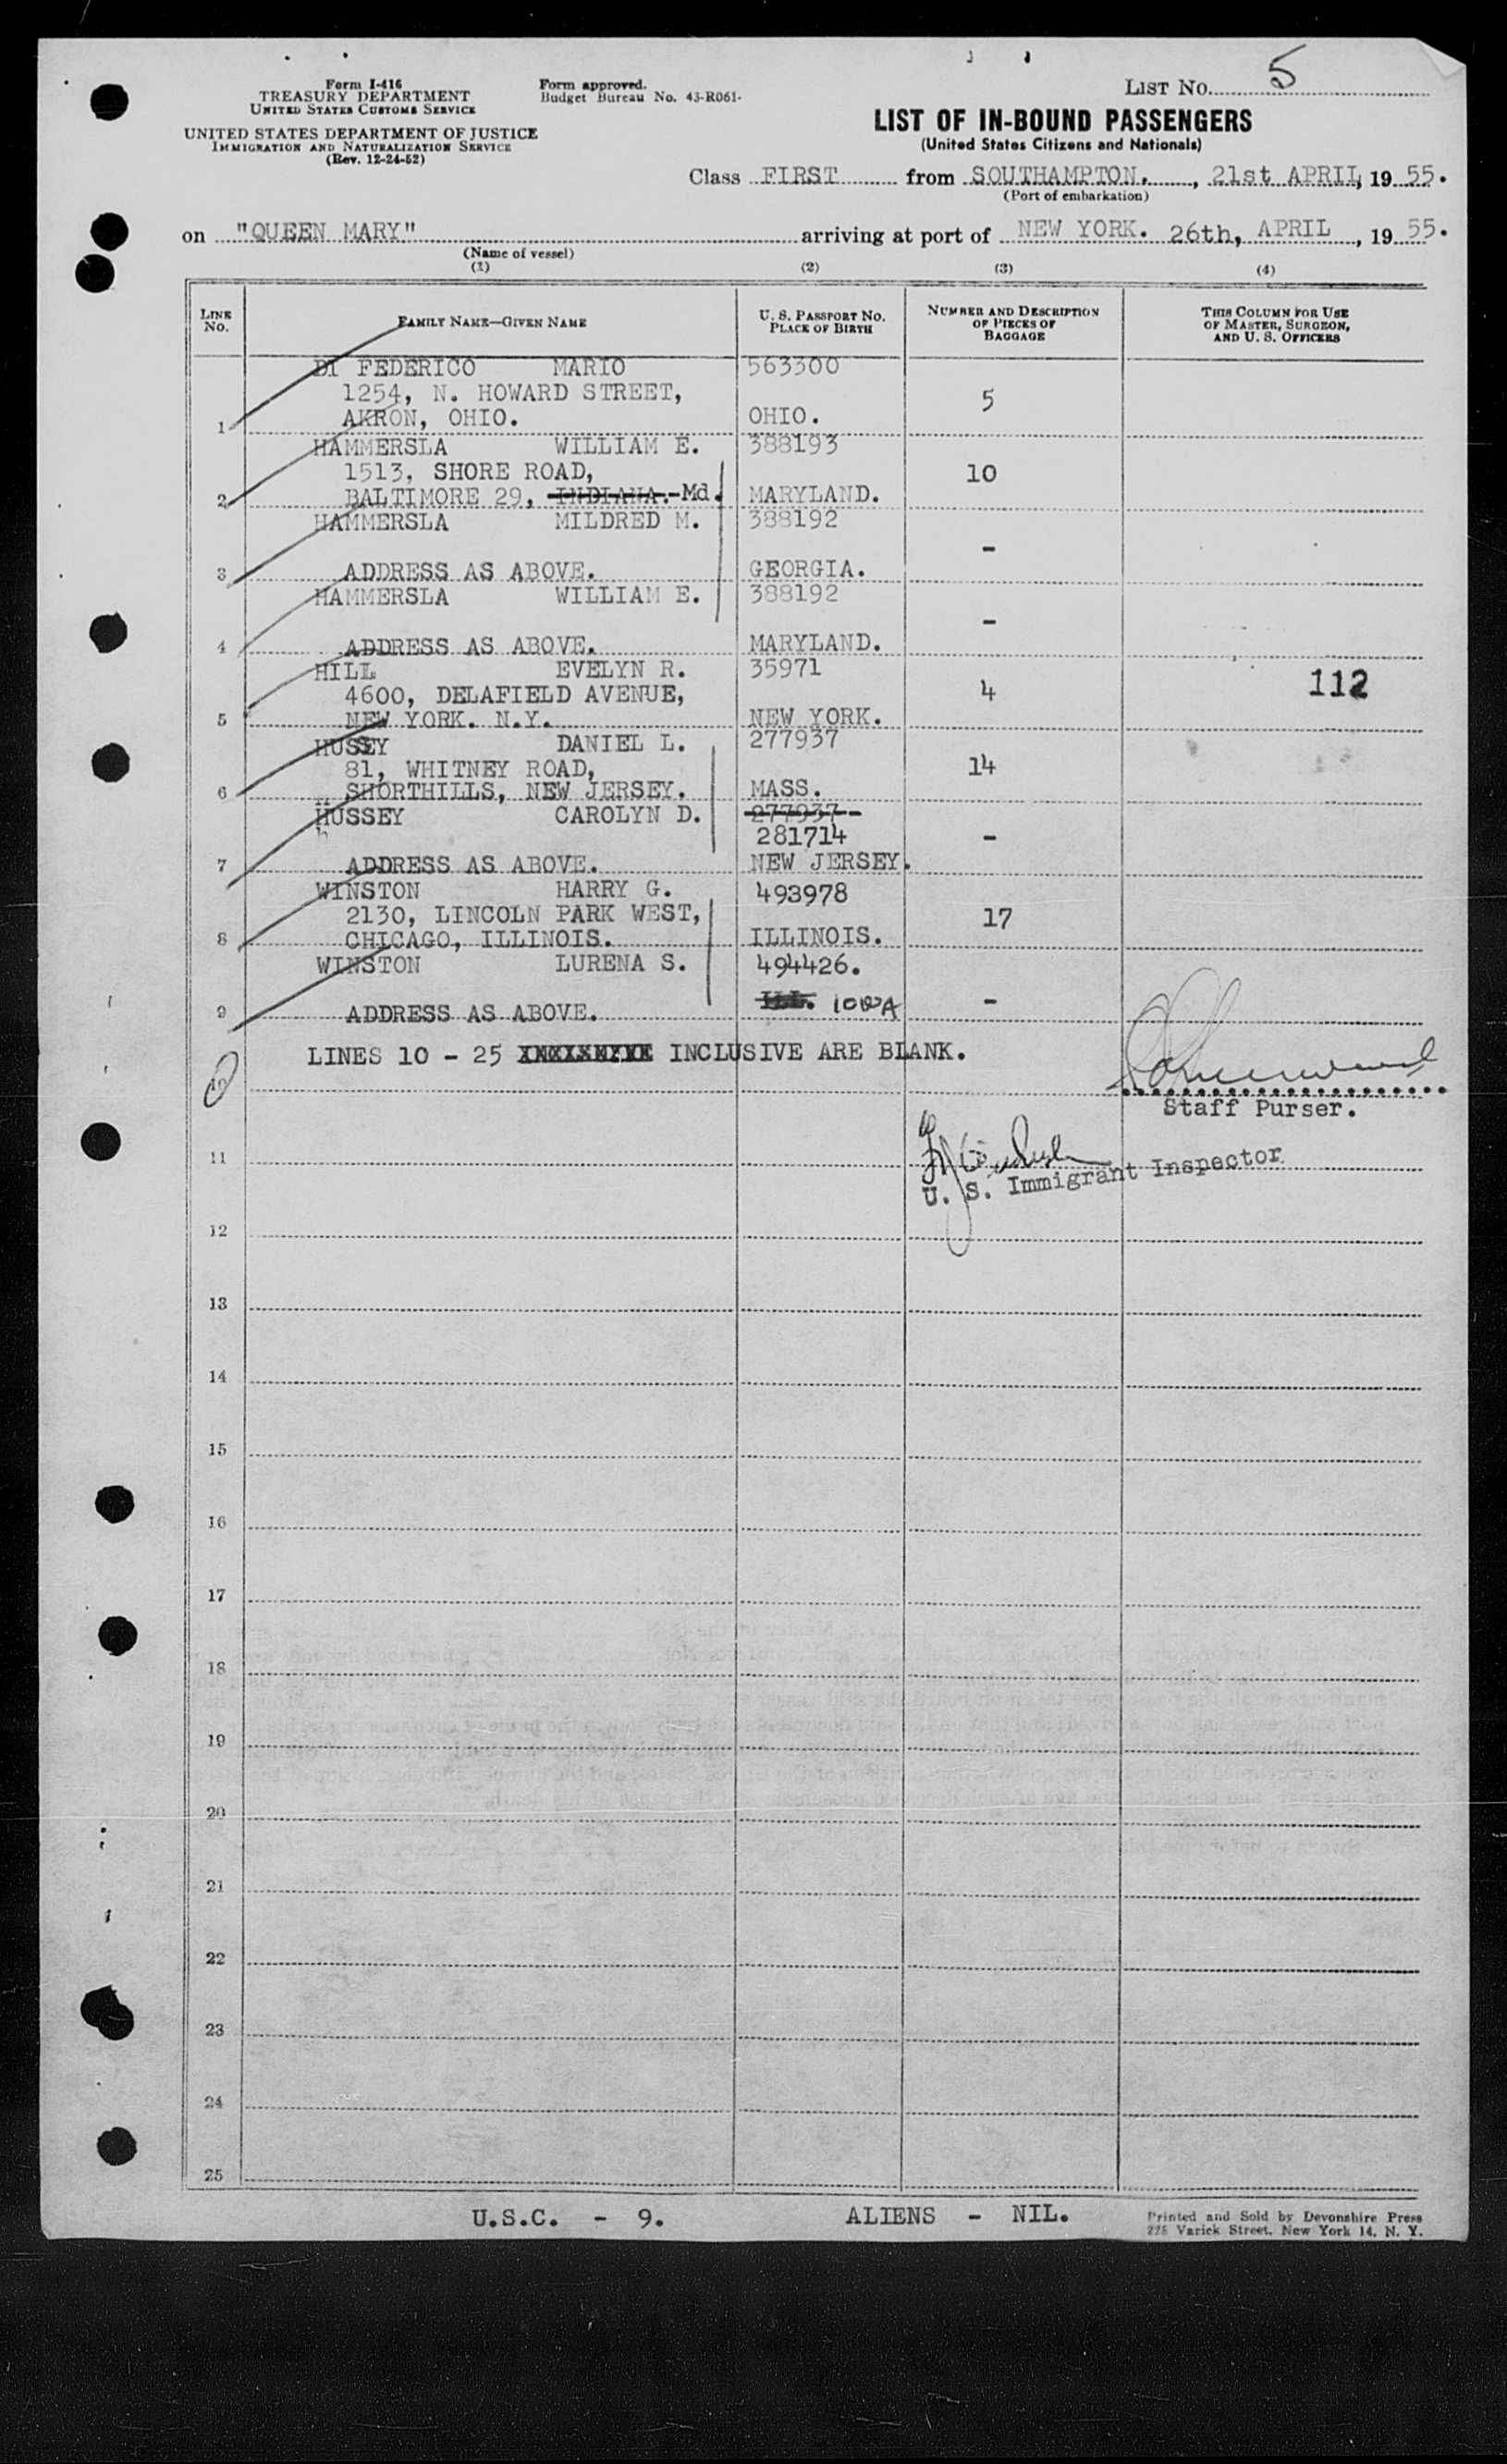 Form I-416
TREASURY DEPARTMENT
UNITED STATES CUSTOMS SERVICE
UNITED STATES DEPARTMENT OF JUSTICE
IMMIGRATION AND NATURALIZATION SERVICE
(Rev. 12-24-52)
Form approved.
Budget Bureau No. 43-R061-
LIST NO. 5
LIST OF IN-BOUND PASSENGERS
(United States Citizens and Nationals)
Class FIRST from SOUTHAMPTON. , 21st APRIL, 19 55.
(Port of embarkation)
on "QUEEN MARY" arriving at port of NEW YORK. 26th, APRIL , 19 55.
(Name of vessel)
(1) (2) (3) (4)
LINE NO. FAMILY NAME—GIVEN NAME U. S. PASSPORT NO. PLACE OF BIRTH NUMBER AND DESCRIPTION OF PIECES OF BAGGAGE THIS COLUMN FOR USE OF MASTER, SURGEON, AND U. S. OFFICERS
DI FEDERICO MARIO 563300
1254, N. HOWARD STREET, 5
1 AKRON, OHIO. OHIO.
HAMMERSLA WILLIAM E. 388193
1513, SHORE ROAD, 10
2 BALTIMORE 29, INDIANA. Md. MARYLAND.
HAMMERSLA MILDRED M. 388192
-
3 ADDRESS AS ABOVE. GEORGIA.
HAMMERSLA WILLIAM E. 388192
-
4 ADDRESS AS ABOVE. MARYLAND.
HILL EVELYN R. 35971
4600, DELAFIELD AVENUE, 4 112
5 NEW YORK. N.Y. NEW YORK.
HUSSEY DANIEL L. 277937
81, WHITNEY ROAD, 14
6 SHORTHILLS, NEW JERSEY. MASS.
HUSSEY CAROLYN D. 277937
281714 -
7 ADDRESS AS ABOVE. NEW JERSEY.
WINSTON HARRY G. 493978
2130, LINCOLN PARK WEST, 17
8 CHICAGO, ILLINOIS. ILLINOIS.
WINSTON LURENA S. 494426.
9 ADDRESS AS ABOVE. ILL. IOWA -
LINES 10 - 25 INCLUSIVE ARE BLANK.
10
Staff Purser.
11
U. S. Immigrant Inspector
12
13
14
15
16
17
18
19
20
21
22
23
24
25
U.S.C. - 9. ALIENS - NIL.
Printed and Sold by Devonshire Press
225 Varick Street, New York 14, N. Y.